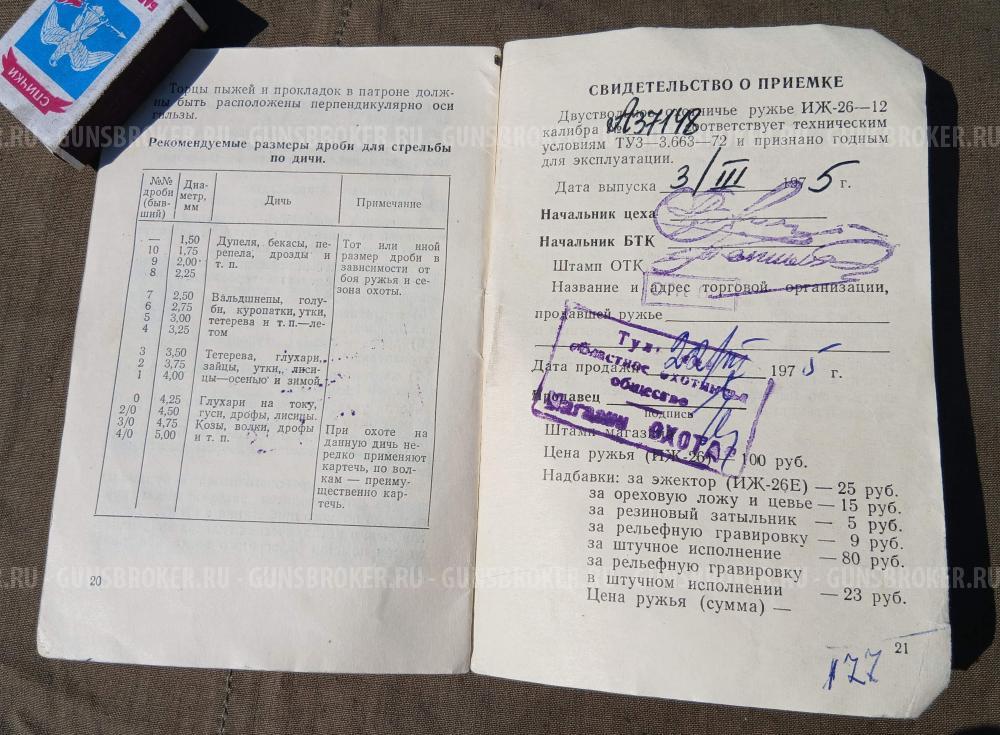 СПИЧКИ
Торцы пыжей и прокладок в патроне долж-
ны быть расположены перпендикулярно оси
гильзы.
Рекомендуемые размеры дроби для стрельбы
по дичи.
№№ дроби (быв- ший) Диа- метр, мм Дичь Примечание
— 1,50 Дупеля, бекасы, пе- Тот или иной
10 1,75 репела, дрозды и размер дроби в
9 2,00 т. п. зависимости от
8 2,25 боя ружья и се-
зона охоты.
7 2,50 Вальдшнепы, голу-
6 2,75 би, куропатки, утки,
5 3,00 тетерева и т. п.—ле-
4 3,25 том
3 3,50 Тетерева, глухари,
2 3,75 зайцы, утки, лиси-
1 4,00 цы—осенью и зимой
0 4,25 Глухари на току,
2/0 4,50 гуси, дрофы, лисицы.
3/0 4,75 Козы, волки, дрофы При охоте на
4/0 5,00 и т. п. данную дичь не-
редко применяют
картечь, по вол-
кам — преиму-
щественно кар-
течь.
20
СВИДЕТЕЛЬСТВО О ПРИЕМКЕ
Двуствольное охотничье ружье ИЖ-26—12
калибра № А37148 соответствует техническим
условиям ТУ3—3.663—72 и признано годным
для эксплуатации.
Дата выпуска 3/III 1975 г.
Начальник цеха
Начальник БТК
Штамп ОТК
Название и адрес торговой организации,
продавшей ружье
Дата продажи 1975 г.
Продавец
подпись
Штамп магазина
областное охотничье
общество
магазин ОХОТА
Цена ружья (ИЖ-26) — 100 руб.
Надбавки: за эжектор (ИЖ-26Е) — 25 руб.
за ореховую ложу и цевье — 15 руб.
за резиновый затыльник — 5 руб.
за рельефную гравировку — 9 руб.
за штучное исполнение — 80 руб.
за рельефную гравировку
в штучном исполнении — 23 руб.
Цена ружья (сумма) —
21
177
RU - GUNSBROKER.RU - GUNSBROKER.RU - GUNSBROKER.RU - GUNSBROKER.RU - GUNSBROKER.RU